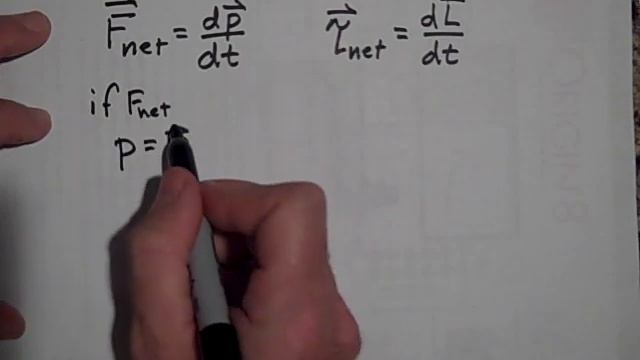 F⃗net = dp⃗/dt    τ⃗net = dL⃗/dt
if Fnet
p =